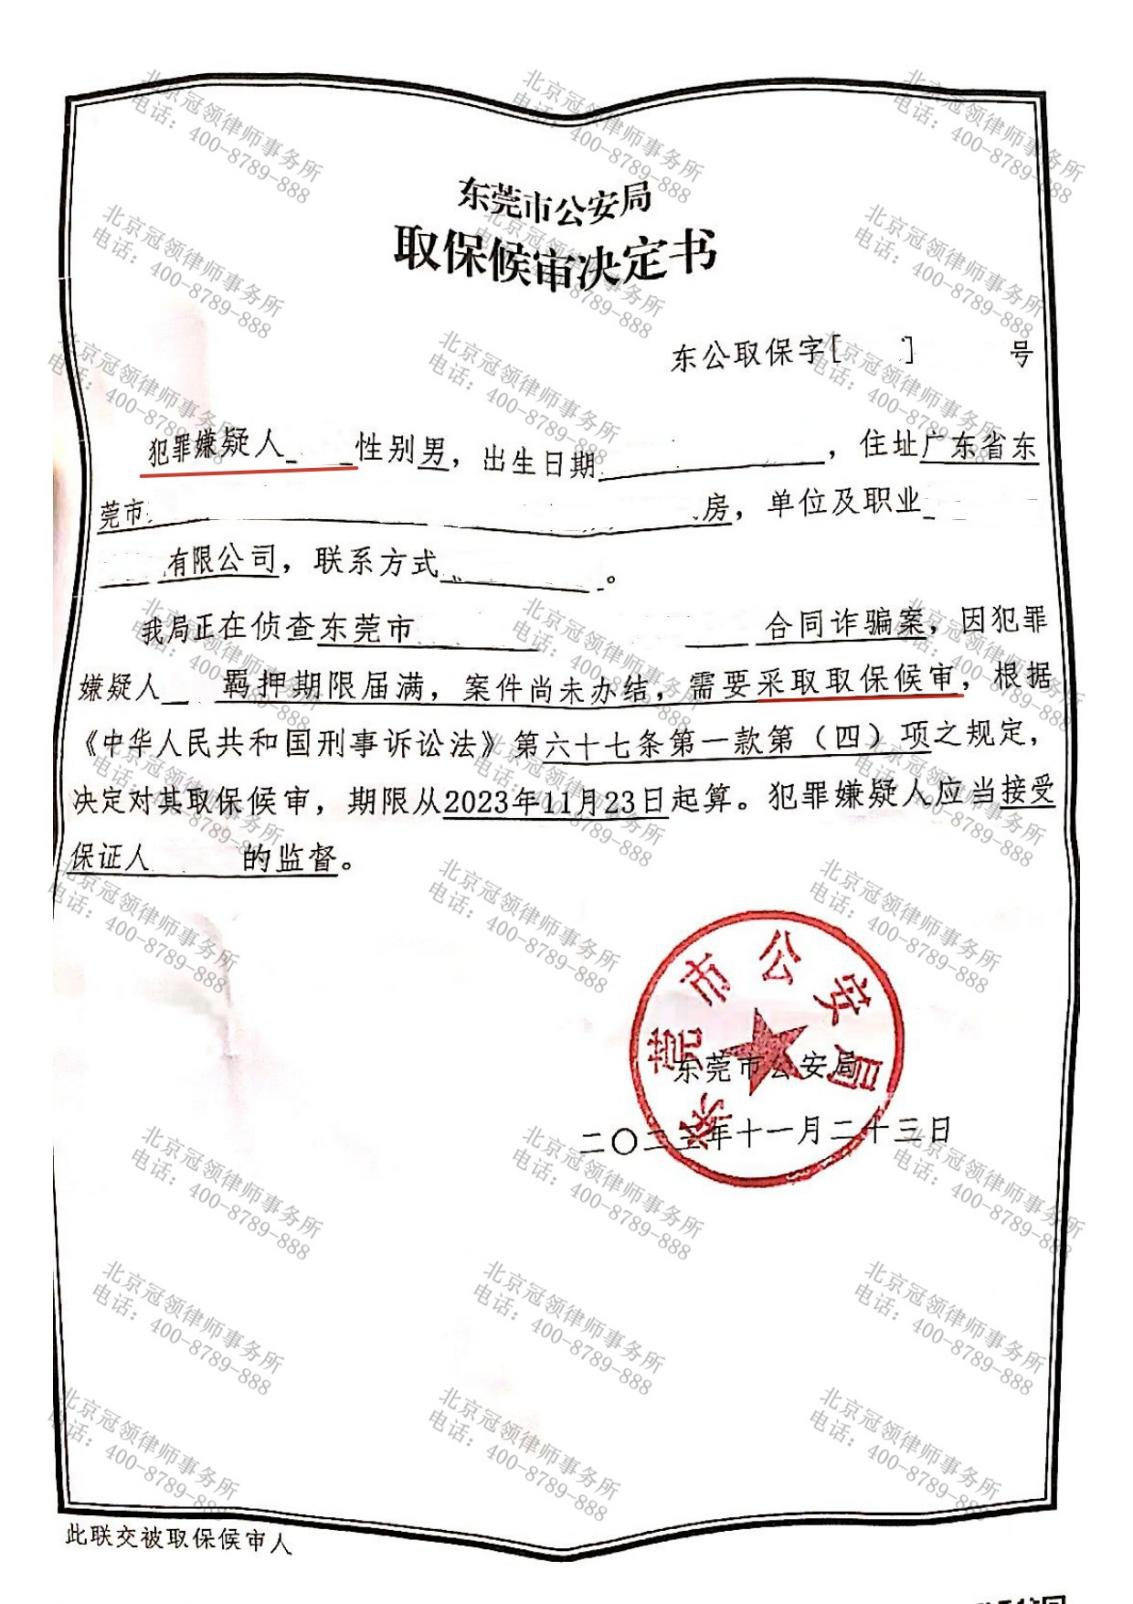 东莞市公安局
取保候审决定书
东公取保字[ ] 号
犯罪嫌疑人 性别男，出生日期 ，住址广东省东
莞市 房，单位及职业
有限公司，联系方式 。
我局正在侦查东莞市 合同诈骗案，因犯罪
嫌疑人 羁押期限届满，案件尚未办结，需要采取取保候审，根据
《中华人民共和国刑事诉讼法》第六十七条第一款第（四）项之规定，
决定对其取保候审，期限从2023年11月23日起算。犯罪嫌疑人应当接受
保证人 的监督。
东莞市公安局
东莞市公安局
二〇二三年十一月二十三日
此联交被取保候审人
北京冠领律师事务所
电话：400-8789-888